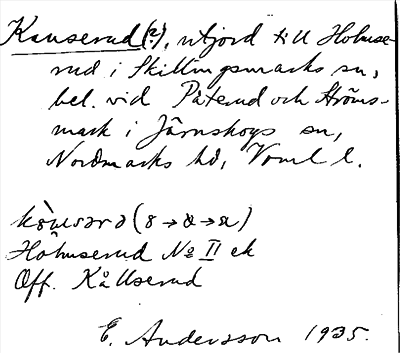 Kauserud(?), utjord till Holmse-
rud i Skillingsmarks sn,
bel. vid Påterud och Ströms-
mark i Järnskogs sn,
Nordmarks hd, Vrml l.
Holmserud No II ek
Off. Kållserud
E. Andersson 1935.